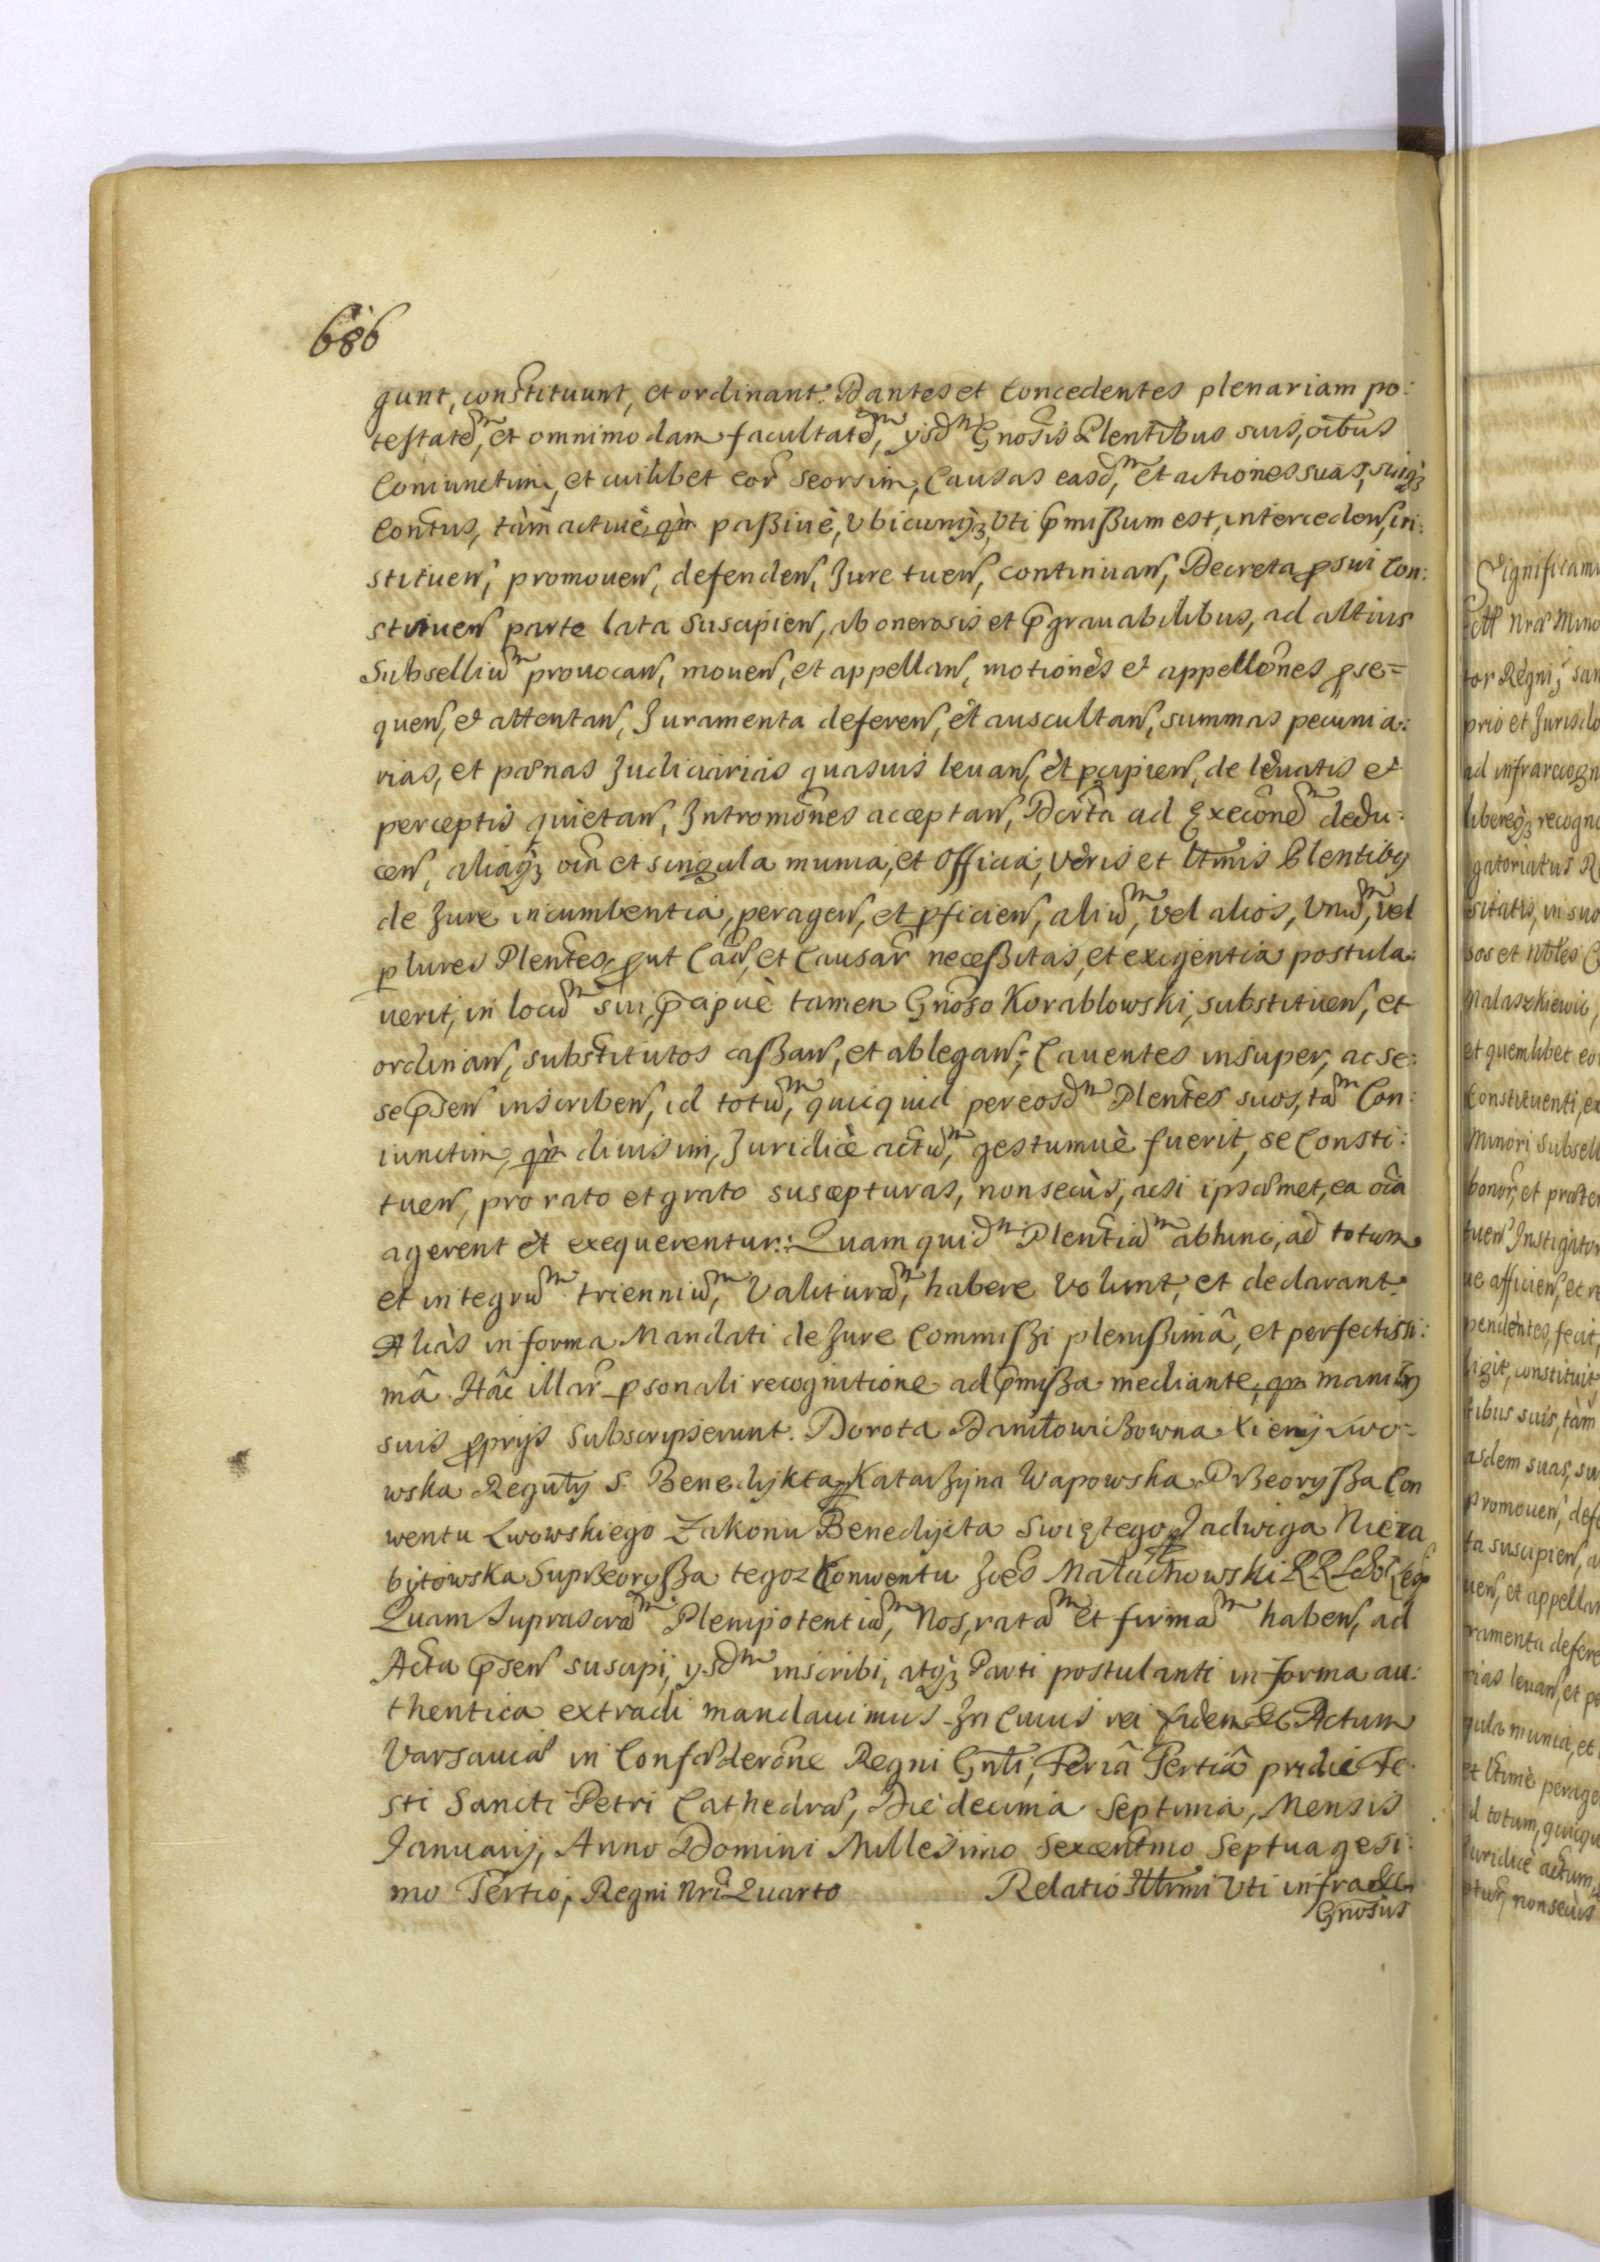 686
gunt, constituunt, et ordinant. Dantes et Concedentes plenariam po:
testatem, et omnimodam facultatem, ysdm Gnosis Plentibus suis, oibus
Coniunctim, et cuilibet eor seorsim, Causas easdm, et actiones suas, suiq3
Contus, tàm actiuè, qm paßiuè, Vbicunq3, Vti pmißum est, intercedens, in:
stituens, promouens, defendens, Jure tuens, continuans, Decreta p sui Con:
stituens parte lata Suscipiens, ab onerosis et pgrauabilibus, ad altius
Subsellium prouocans, mouens, et appellans, motiones et appellones pse=
quens, et attentans, Juramenta deferens, et auscultans, summas pecunia:
rias, et pœnas Judiciarias quasuis leuans, et pcipiens, de leuatis et
perceptis quietans, Intromones acceptans, Dcrta ad Execonem dedu:
cens, aliaq3 oia et singula munia, et Officia, veris et Ltmis Plentiby
de Jure incumbentia, peragens, et pficiens, alium, vel alios, Vnum, vel
plures Plentes, put Cae, et Causar neceßitas, et exigentia postula:
uerit, in locum sui, pcipuè tamen Gnoso Korablowski, substituens, et
ordinans, substitutos caßans, et ablegans; Cauentes insuper, ac se:
se psens inscribens, id totum, quicquid per eosdm Plentes suos, tam Con:
iunctim, qm diuisim, Juridicè actum, gestumuè fuerit, se Consti:
tuens, pro rato et grato suscepturas, non secùs, acsi ipsæmet, ea oia
agerent et exequerentur: Quam quidm Plentiam abhinc, ad totum
et integrum triennium, Valituram, habere Volunt, et declarant.
Aliàs in forma Mandati de Jure Commißi plenißimâ, et perfectissi:
mâ. Hâc illar psonali recognitione ad pmißa mediante, qm maniby
suis pprijs Subscripserunt. Dorota Daniłowiczowna Xieny Lwo-
wska Reguły S. Benedykta Katarzyna Wapowska Przeoryßa Con
wentu Lwowskiego Zakonu Benedykta Swiętego Jadwiga Nieza
bitowska Suprzeoryßa tegoz Konwentu Joes Małachowski
Quam Suprascram Plenipotentiam, Nos, ratam et firmam habens, ad
Acta psens suscipi, ysdm inscribi, atq3 Parti postulanti in forma au:
thentica extradi mandauimus. In Cuius rei fidem &c Actum
Varsauiæ in Confœderone Regni Gnli, Feriâ Tertiâ pridie Fe:
sti Sancti Petri Cathedræ, Die decima Septima, Mensis
Januarij, Anno Domini Millesimo Sexcentmo Septuagesi:
mo Tertio, Regni Nri Quarto Relatio Illrmi Vti infra &c
Gnosus